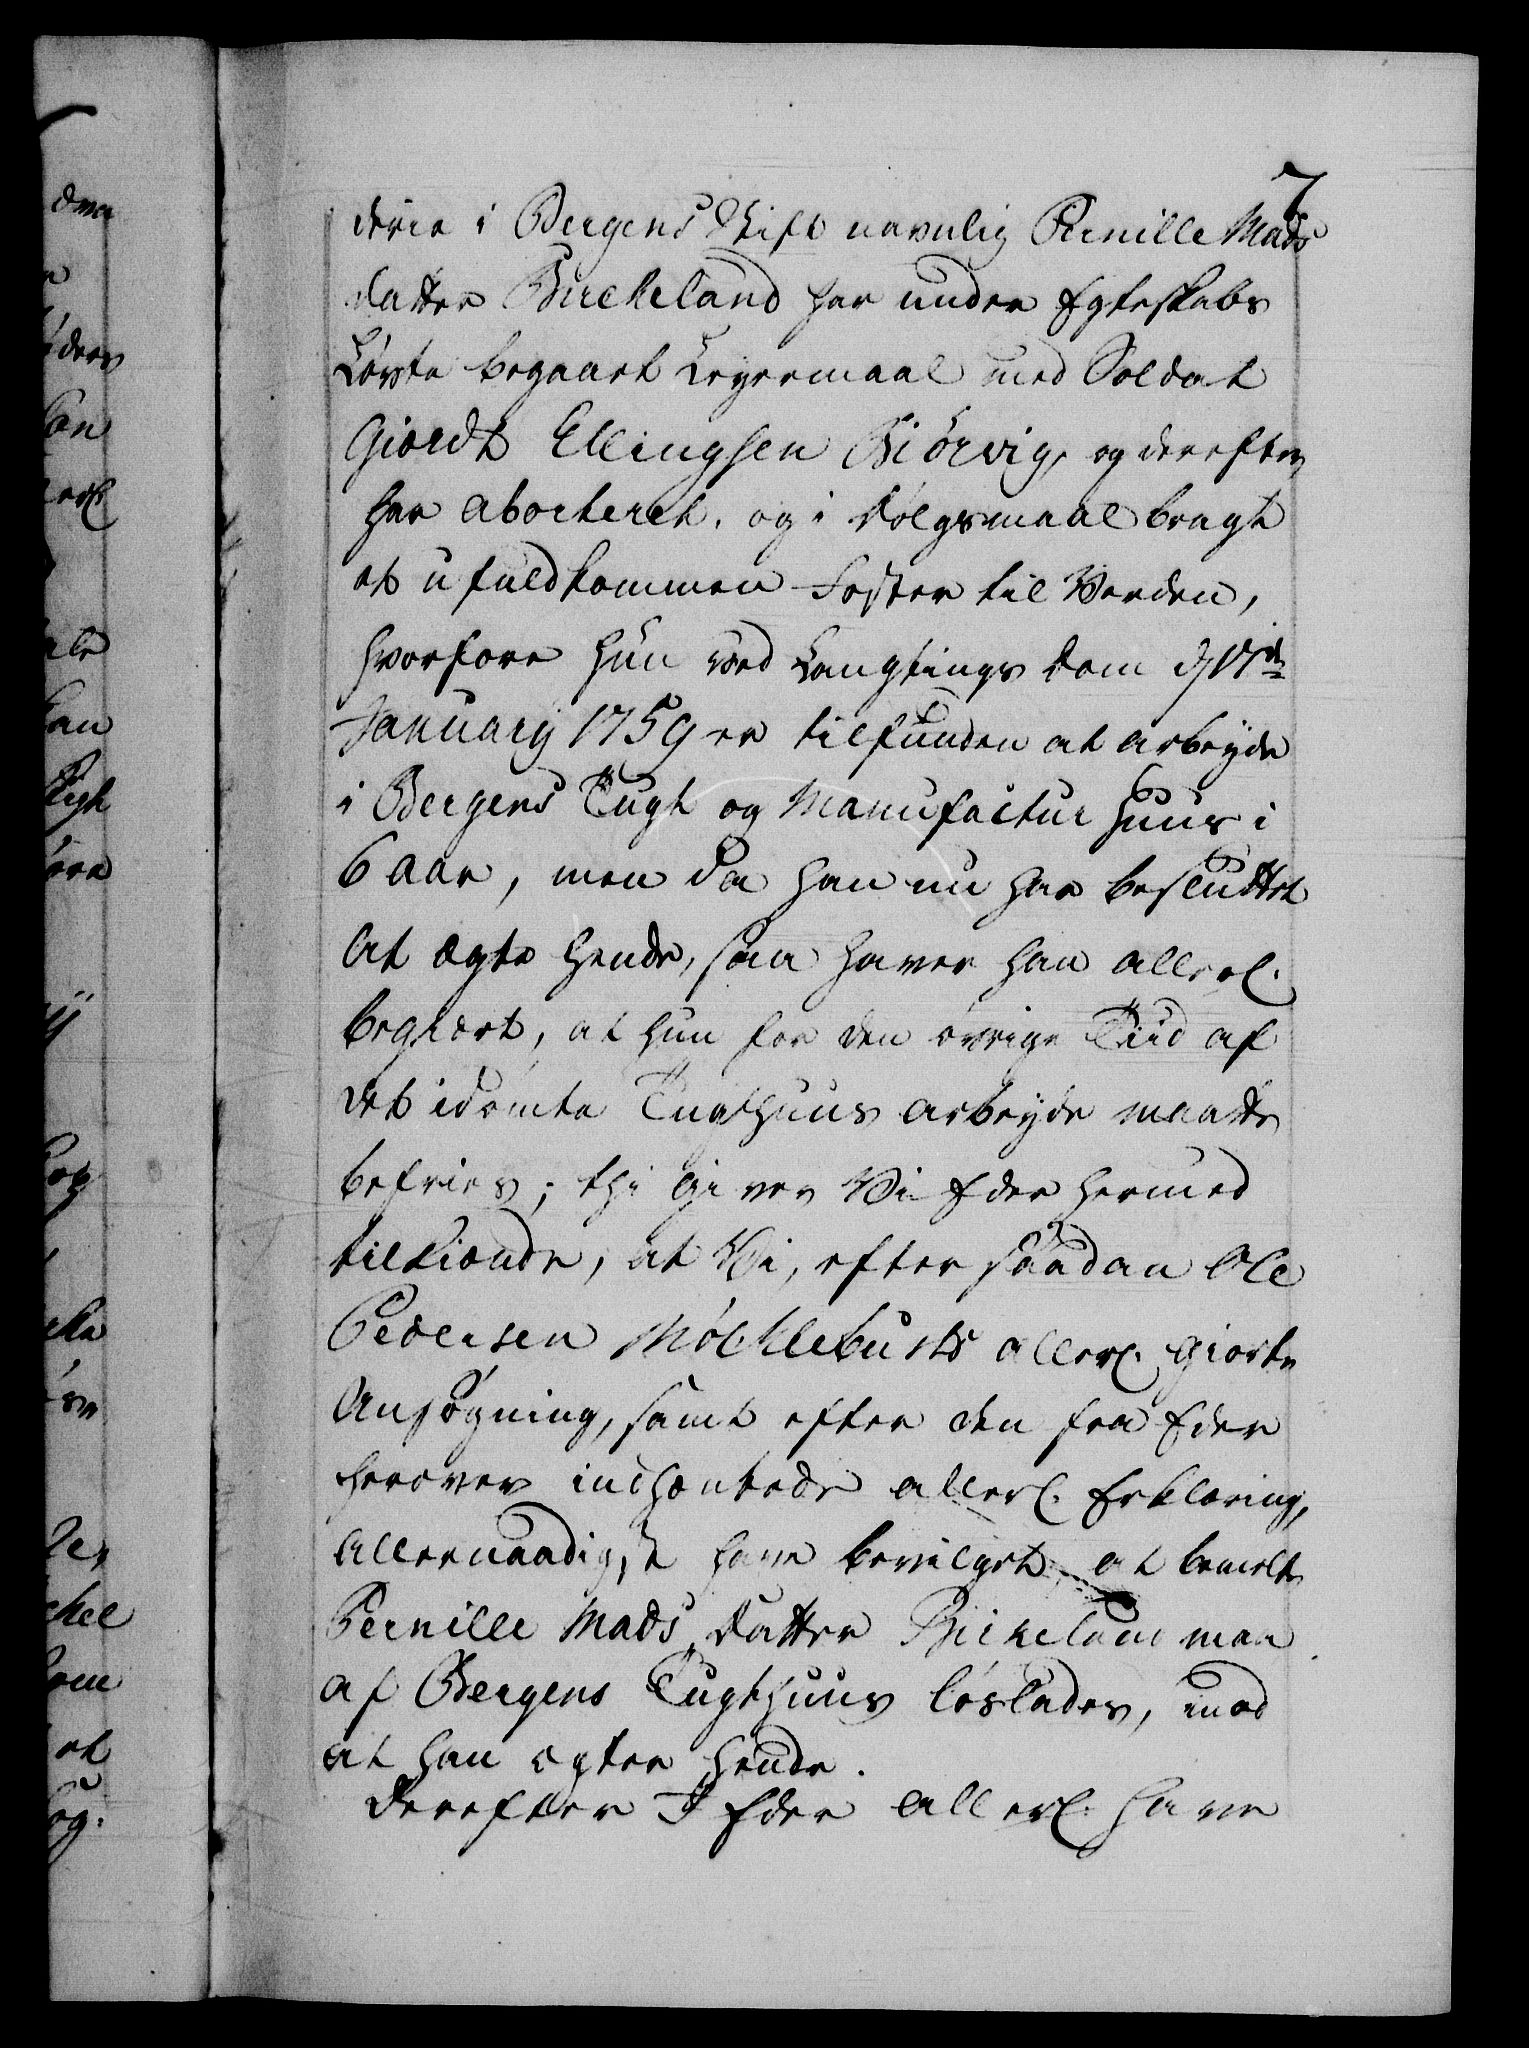 7
derie i Bergens Stift navnlig Pernille Mads
datter Birckeland har under Egteskabs
Løvte begaaet Leyermaal med Soldat
Giordt Ellingsen Biørvig, og derefter
har aborteret, og i Dølgsmaal bragt
et ufuldkommen Foster til Verden,
hvorfore hun ved Laugtings Dom d 17de
January 1759 er tilfunden at arbeyde
i Bergens Tugt og Manufactur Huus i
6 aar, men da han nu har besluttet
at ægte hende, saa haver han allerl.
begiært, at hun for den øvrige Tiid af
det idømte Tugthuus arbeyde maatte
befries; thi giver Vi Eder hermed
tilkiende, at Vi, efter saadan Ole
Pedersen Møcklebusts allerl. giorte
Ansøgning, samt efter den fra Eder
herover indhentede allerl. Erklæring,
allernaadigst have bevilget, at bemelte
Pernille Mads datter Birkeland maa
af Bergens Tugthuus løslades, imod
at han egter hende.
Derefter I Eder allerl. have